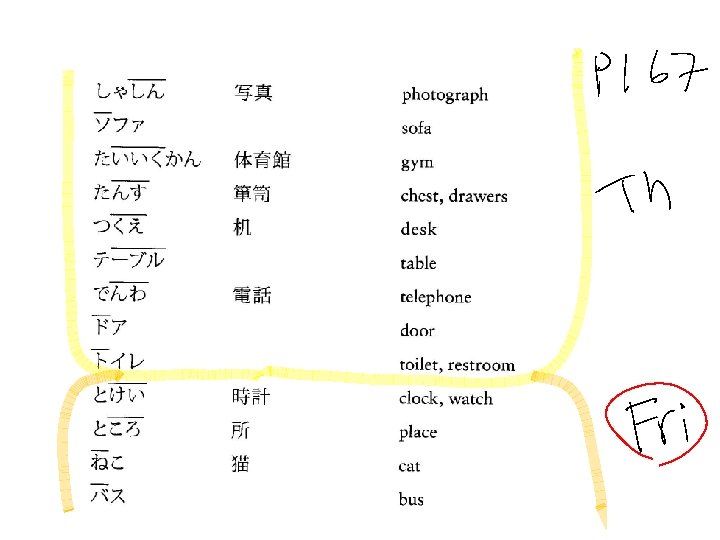 P167
しゃしん 写真 photograph
ソファ sofa
たいいくかん 体育館 gym
たんす 箪笥 chest, drawers
Th
つくえ 机 desk
テーブル table
でんわ 電話 telephone
ドア door
トイレ toilet, restroom
とけい 時計 clock, watch
ところ 所 place
Fri
ねこ 猫 cat
バス bus